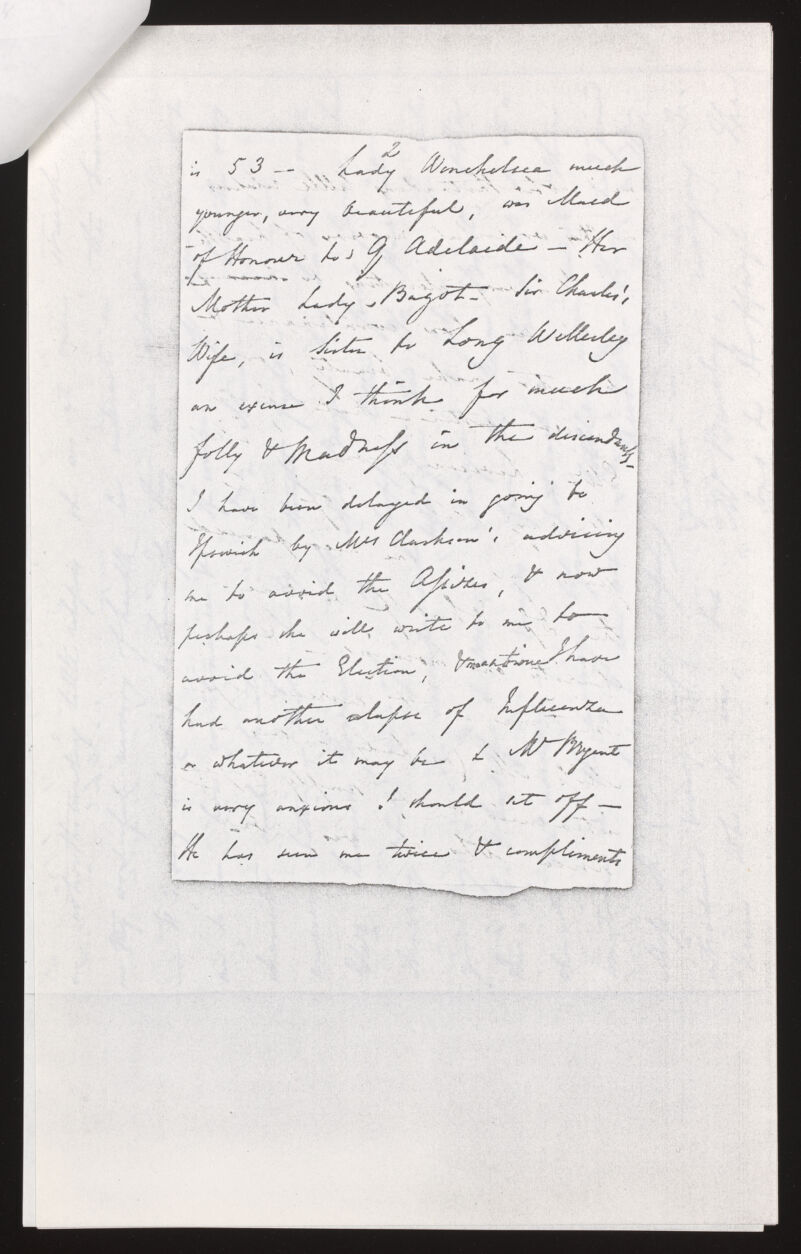 2
is 53 -- Lady Winchelsea much
younger, very beautiful, was Maid
of Honour to Q Adelaide - Her
Mother Lady Bagot - Sir Charles's
Wife, is Sister to Long Wellesley
an excuse I think for much
folly & Madness in the descendants -
I have been delayed in going to
Ipswich by Mrs Clarkson's advising
me to avoid the Assizes, & now
perhaps she will write to me to
avoid the Election, I have
had another relapse of Influenza
or whatever it may be & Mr Bryant
is very anxious I should set off -
He has seen me twice & compliments